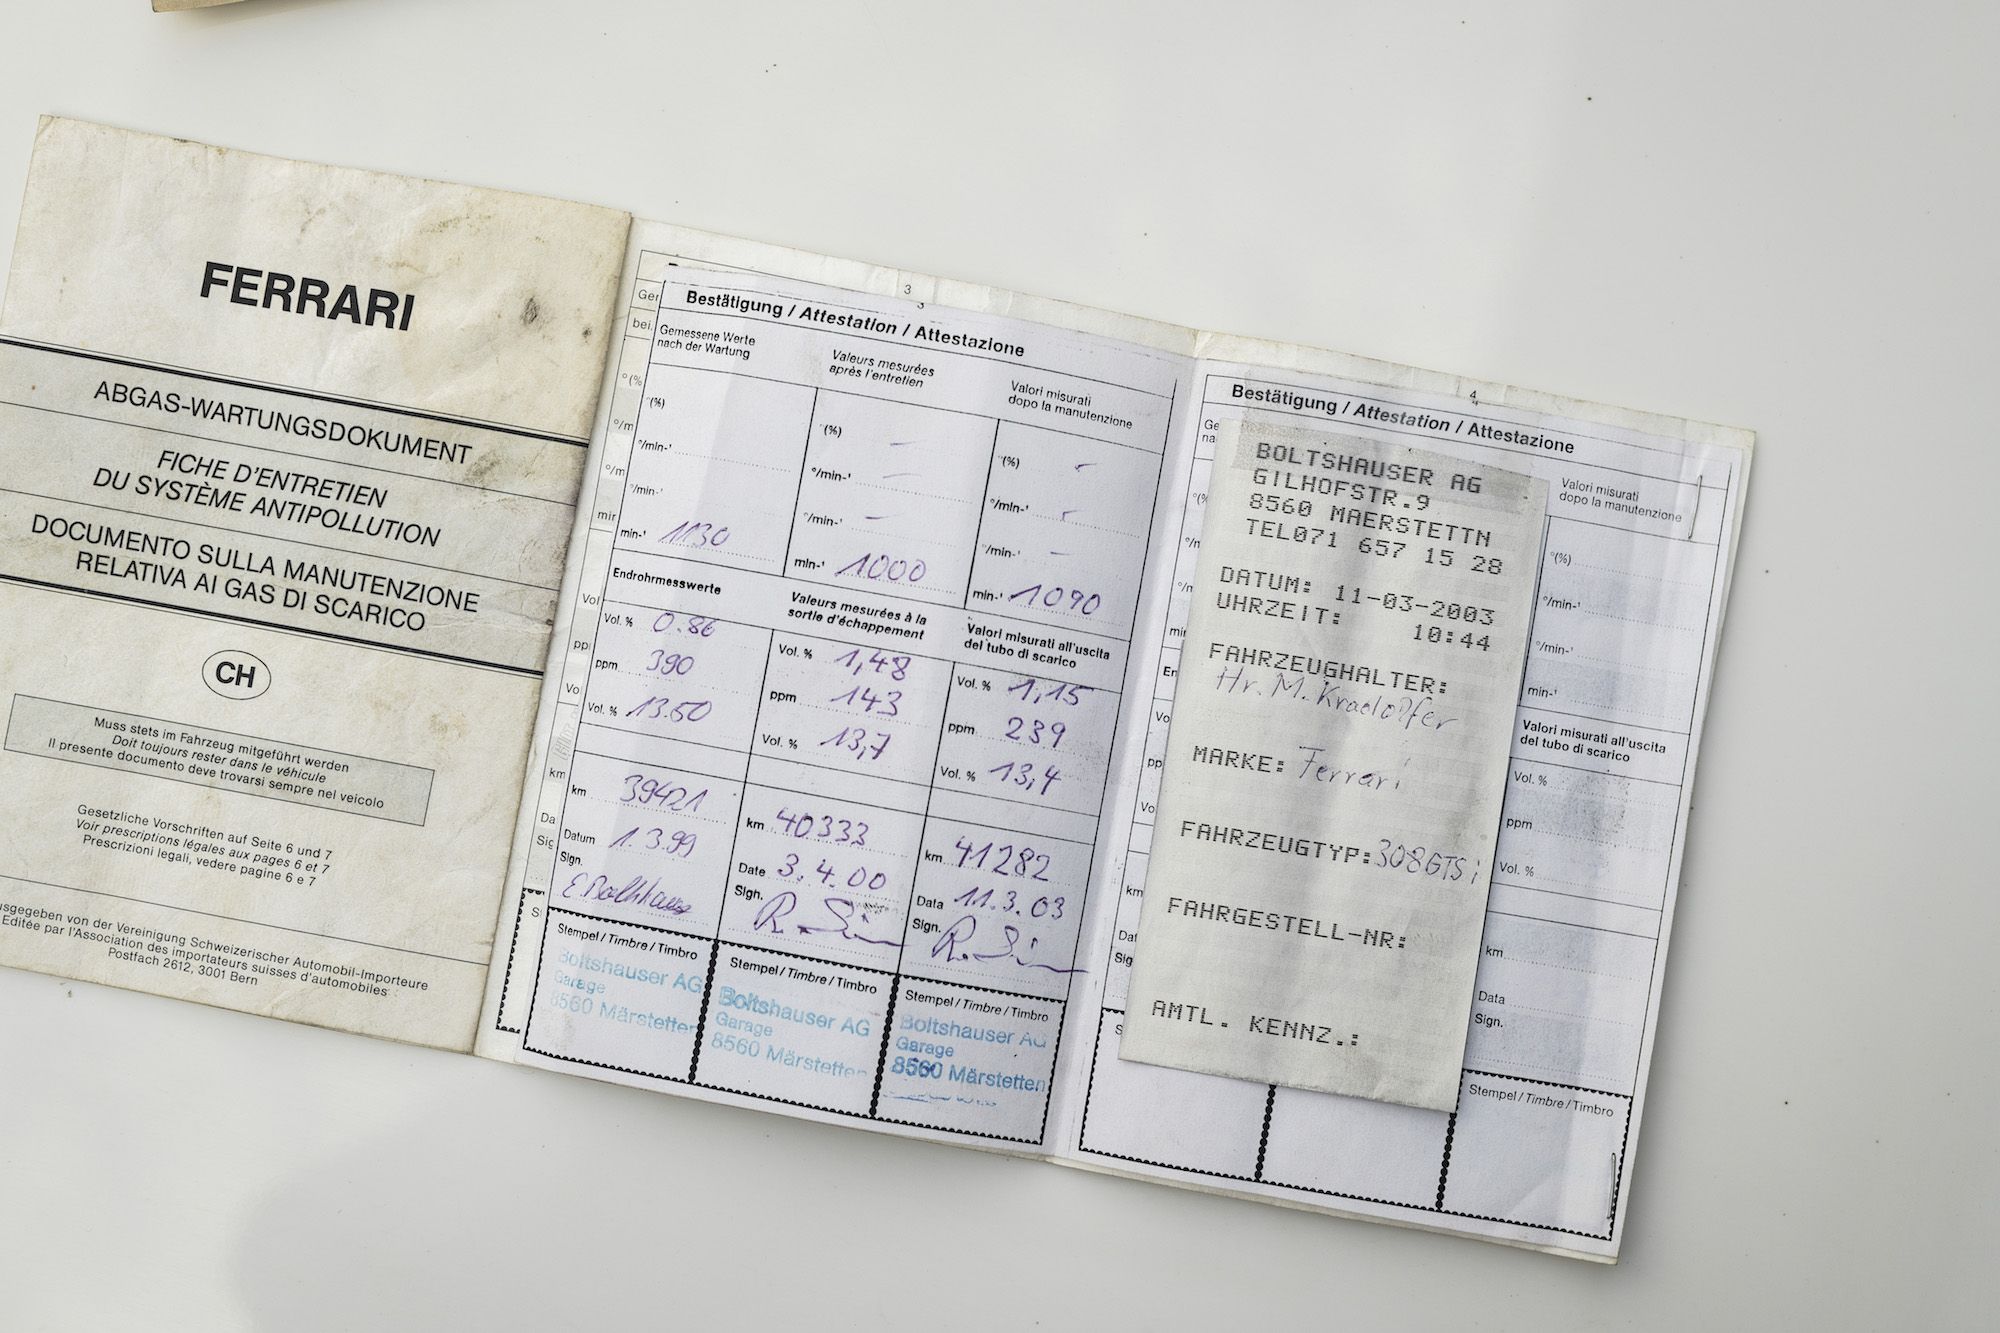 FERRARI
ABGAS-WARTUNGSDOKUMENT
FICHE D'ENTRETIEN
DU SYSTÈME ANTIPOLLUTION
DOCUMENTO SULLA MANUTENZIONE
RELATIVA AI GAS DI SCARICO
CH
Muss stets im Fahrzeug mitgeführt werden
Doit toujours rester dans le véhicule
Il presente documento deve trovarsi sempre nel veicolo
Gesetzliche Vorschriften auf Seite 6 und 7
Voir prescriptions légales aux pages 6 et 7
Prescrizioni legali, vedere pagine 6 e 7
usgegeben von der Vereinigung Schweizerischer Automobil-Importeure
Editée par l'Association des importateurs suisses d'automobiles
Postfach 2612, 3001 Bern
3
Bestätigung / Attestation / Attestazione
Gemessene Werte
nach der Wartung
°(%)
°/min-¹
°/min-¹
min-¹ 1130
Endrohrmesswerte
Vol. % 0.86
ppm 390
Vol. % 13.60
km 39421
Datum 1.3.99
Sign.
Stempel / Timbre / Timbro
Boltshauser AG
Garage
8560 Märstetten
Valeurs mesurées
après l'entretien
°(%) –
°/min-¹ –
°/min-¹ –
min-¹ 1000
Valeurs mesurées à la
sortie d'échappement
Vol. % 1,48
ppm 143
Vol. % 13,7
km 40333
Date 3.4.00
Sign.
Stempel / Timbre / Timbro
Boltshauser AG
Garage
8560 Märstetten
Valori misurati
dopo la manutenzione
°(%) –
°/min-¹ –
°/min-¹ –
min-¹ 1090
Valori misurati all'uscita
del tubo di scarico
Vol. % 1,15
ppm 239
Vol. % 13,4
km 41282
Data 11.3.03
Sign.
Stempel / Timbre / Timbro
Boltshauser AG
Garage
8560 Märstetten
4
Bestätigung / Attestation / Attestazione
BOLTSHAUSER AG
GILHOFSTR.9
8560 MAERSTETTN
TEL071 657 15 28
DATUM: 11-03-2003
UHRZEIT: 10:44
FAHRZEUGHALTER:
Hr. M. Kradolfer
MARKE: Ferrari
FAHRZEUGTYP: 308GTS i
FAHRGESTELL-NR:
AMTL. KENNZ.:
Valori misurati
dopo la manutenzione
°(%)
°/min-¹
°/min-¹
min-¹
Valori misurati all'uscita
del tubo di scarico
Vol. %
ppm
Vol. %
km
Data
Sign.
Stempel / Timbre / Timbro